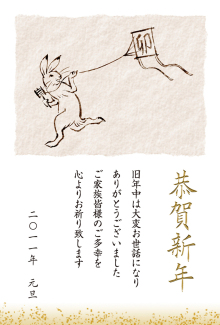 卯
恭賀新年
旧年中は大変お世話になり
ありがとうございました
ご家族皆様のご多幸を
心よりお祈り致します
二〇一一年 元旦